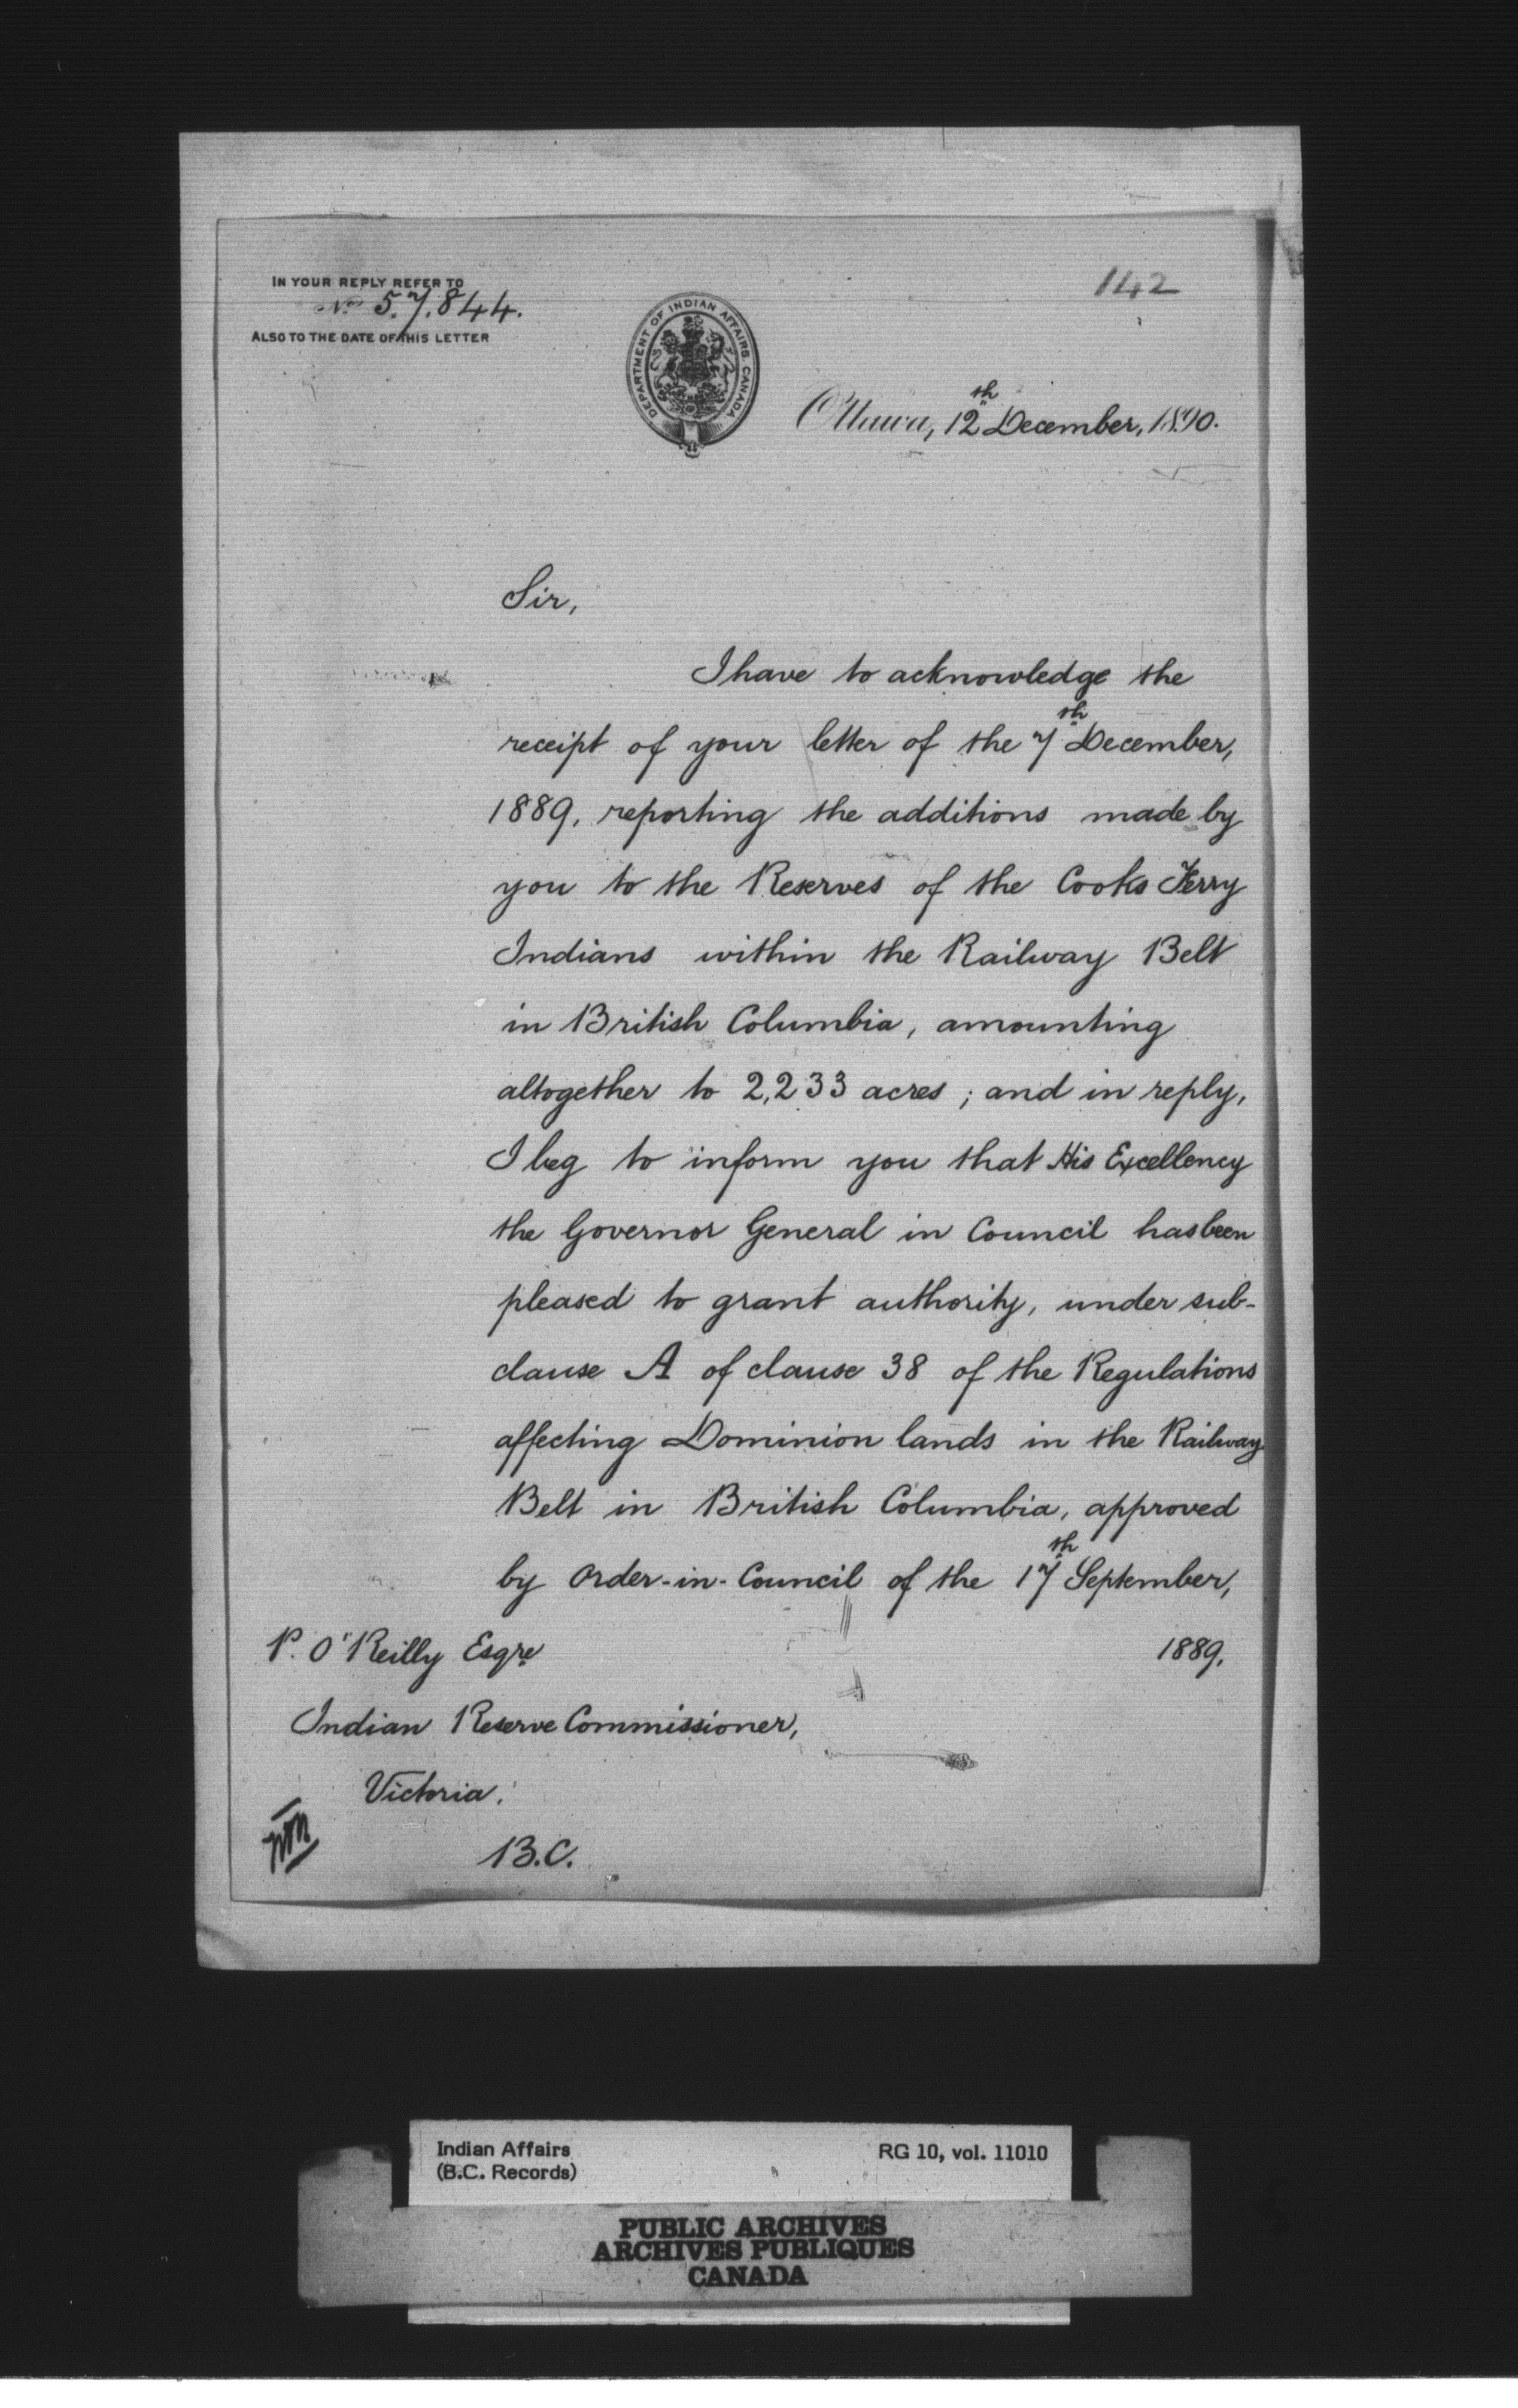 IN YOUR REPLY REFER TO
No 57.844.
ALSO TO THE DATE OF THIS LETTER
142
DEPARTMENT OF INDIAN AFFAIRS. CANADA
Ottawa, 12th December, 1890.
Sir,
I have to acknowledge the
receipt of your letter of the 7th December,
1889, reporting the additions made by
you to the Reserves of the Cooks Ferry
Indians within the Railway Belt
in British Columbia, amounting
altogether to 2,233 acres; and in reply,
I beg to inform you that His Excellency
the Governor General in Council has been
pleased to grant authority, under sub-
clause A of clause 38 of the Regulations
affecting Dominion lands in the Railway
Belt in British Columbia, approved
by Order-in-Council of the 17th September,
1889.
P. O'Reilly Esqre
Indian Reserve Commissioner,
Victoria.
B.C.
Indian Affairs
(B.C. Records)
RG 10, vol. 11010
PUBLIC ARCHIVES
ARCHIVES PUBLIQUES
CANADA